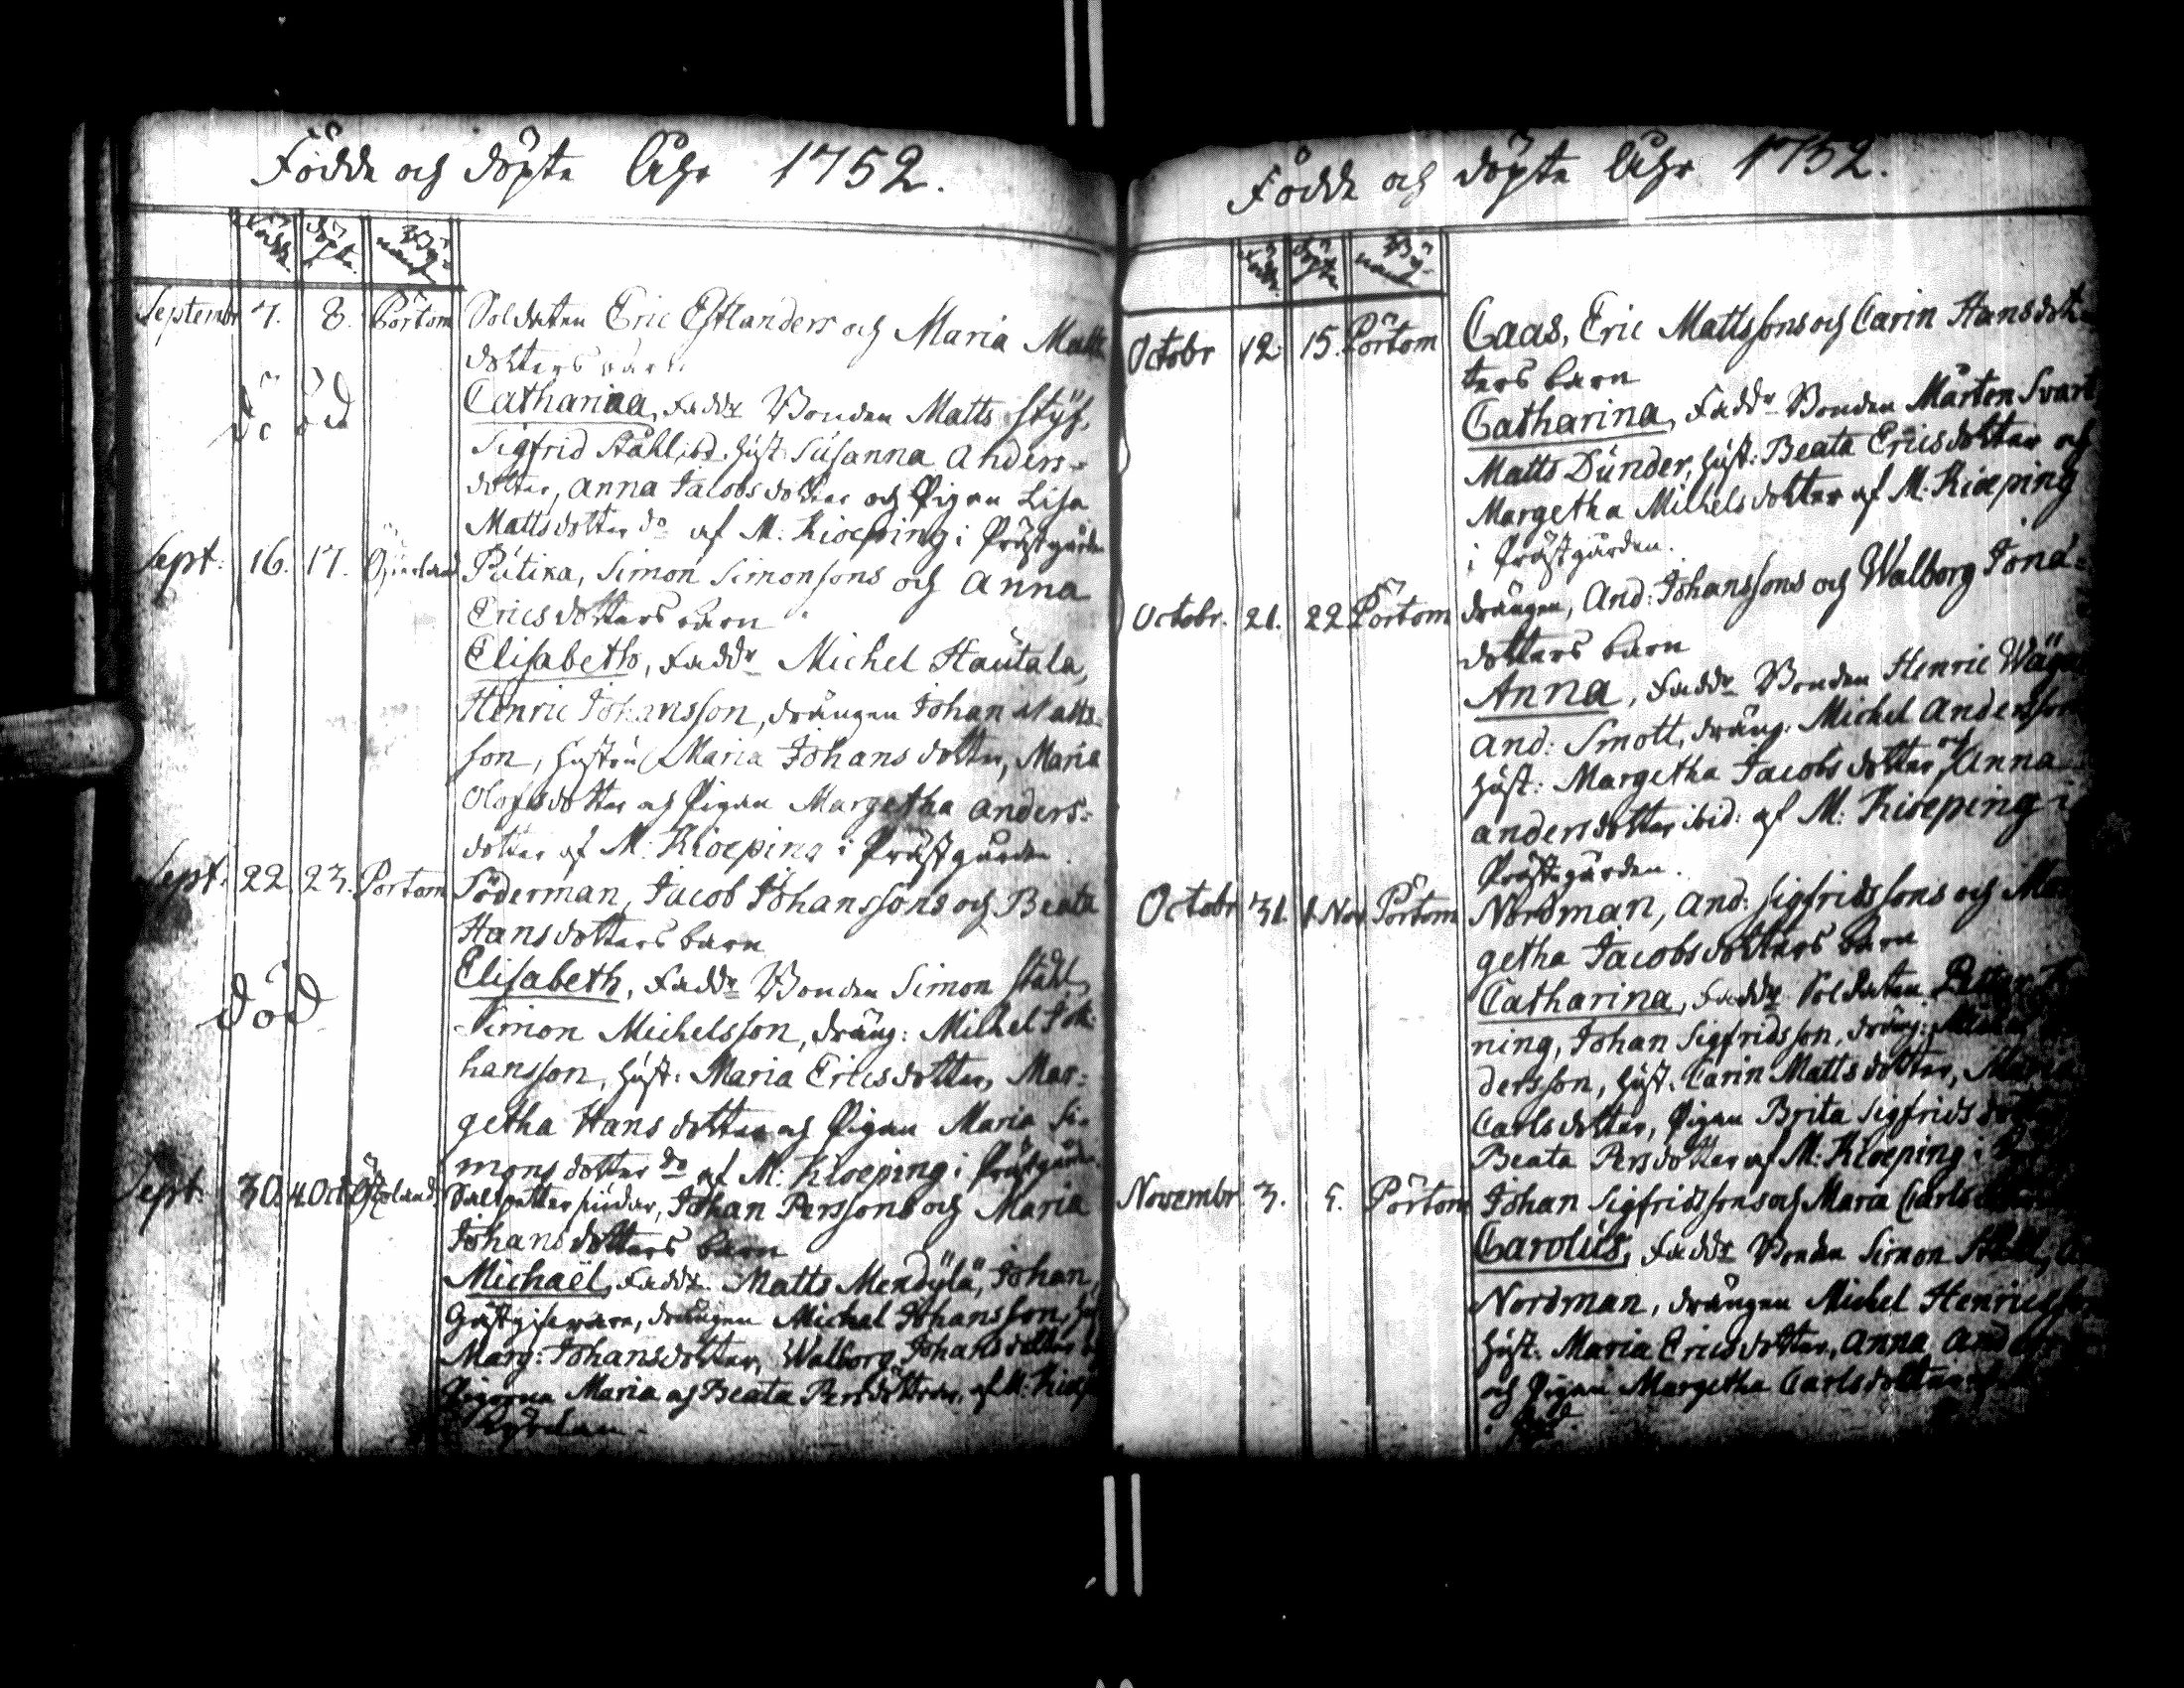 Födde och döpte Åhr 1752.
Födde döpte By namn
Septembr 7. 8. Pörtom Soldaten Eric Estlanders och Maria Matts
dotters barn
död Catharina, Faddr Bonden Matts Styf,
Sigfrid Ståhl ibd. hust: Susanna Anders-
dotter, Anna Jacobsdotter och Pigan Lisa
Mattsdotter do af M: Kioeping i Prästgården
Sept: 16. 17. Pütika, Simon Simonssons och Anna
Ericsdotters barn
Elisabeth, Faddr Michel Hautala,
Henric Johansson, drängen Johan Matts-
son, hustru Maria Johansdotter, Maria
Olofsdotter och Pigan Margetha Anders-
dotter af M: Kioeping i Prästgården.
Sept: 22. 23. Pörtom Söderman, Jacob Johanssons och Beata
Hansdotters barn
död Elisabeth, Faddr Bonden Simon Ståhl,
Simon Michelsson, dräng: Michel Jo-
hansson, hust: Maria Ericsdotter, Mar-
getha Hansdotter och Pigan Maria Si-
monsdotter do af M: Kioeping i Prästgården.
Sept: 30. 4. Oct. Saltpetter siudar, Johan Perssons och Maria
Johansdotters barn
Michaël, Faddr. Matts Mendylä, Johan
Gästgifware, drängen Michel Johansson, hust
Marg: Johansdotter, Walborg Johansdotter
Pigorna Maria och Beata Persdöttrar, af M: Kioep
Födde och döpte Åhr 1752.
Födde döpte By namn
Octobr 12. 15. Pörtom Caas, Eric Mattssons och Carin Hansdot-
ters barn
Catharina, Faddr Bonden Mårten Svart
Matts Dunder, hust: Beata Ericsdotter och
Margetha Michelsdotter af M: Kioeping
i Prästgården.
Octobr. 21. 22. Pörtom drängen, And: Johanssons och Walborg Jona-
dotters barn
Anna, Faddr Bonden Henric
And: Smott, dräng: Michel Andersson
hust: Margetha Jacobsdotter och Anna
Andersdotter ibid: af M: Kioeping i
Prästgården.
Octobr 31. 1. Nov Pörtom Nordman, And: Sigfridssons och Mar
getha Jacobsdotters barn
Catharina, Faddr Soldaten Petter
ning, Johan Sigfridsson, dräng:
dersson, hust. Carin Mattsdotter,
Carlsdotter, Pigan Brita Sigfrids
Beata Persdotter af M: Kioeping i
Novembr 3. 5. Pörtom Johan Sigfridssons och Maria Carls
Carolus, Faddr Bonden Simon Ståhl,
Nordman, drängen Michel Henricsson
hust: Maria Ericsdotter, Anna And
och Pigan Margetha Carlsdotter